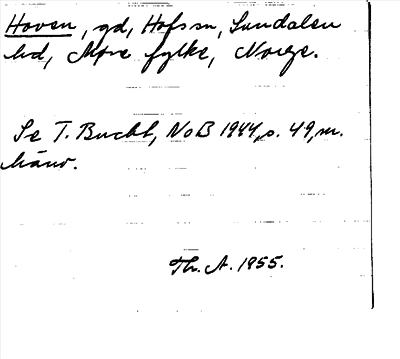 Hoven, gd, Hofs sn, Sundalen
hd, Møre fylke, Norge.
Se T. Bucht, NoB 1944, s. 49, m.
hänv.
Th. A. 1955.